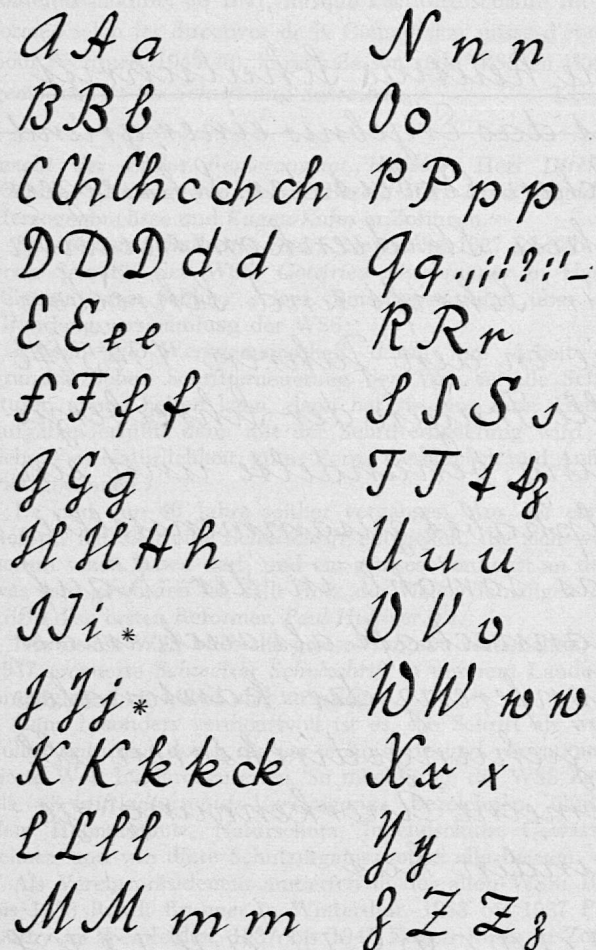 A A a
B B b
C Ch Ch c ch ch
D D D d d
E E e e
F F f f
G G g
H H H h
I I i *
J J j *
K K k k ck
L L l l
M M m m
N n n
O o
P P p p
Q q . , : ; ! ? " " –
R R r
S S S s
T T t tz
U u u
V V v
W W w w
X x x
Y y
Z Z Z z